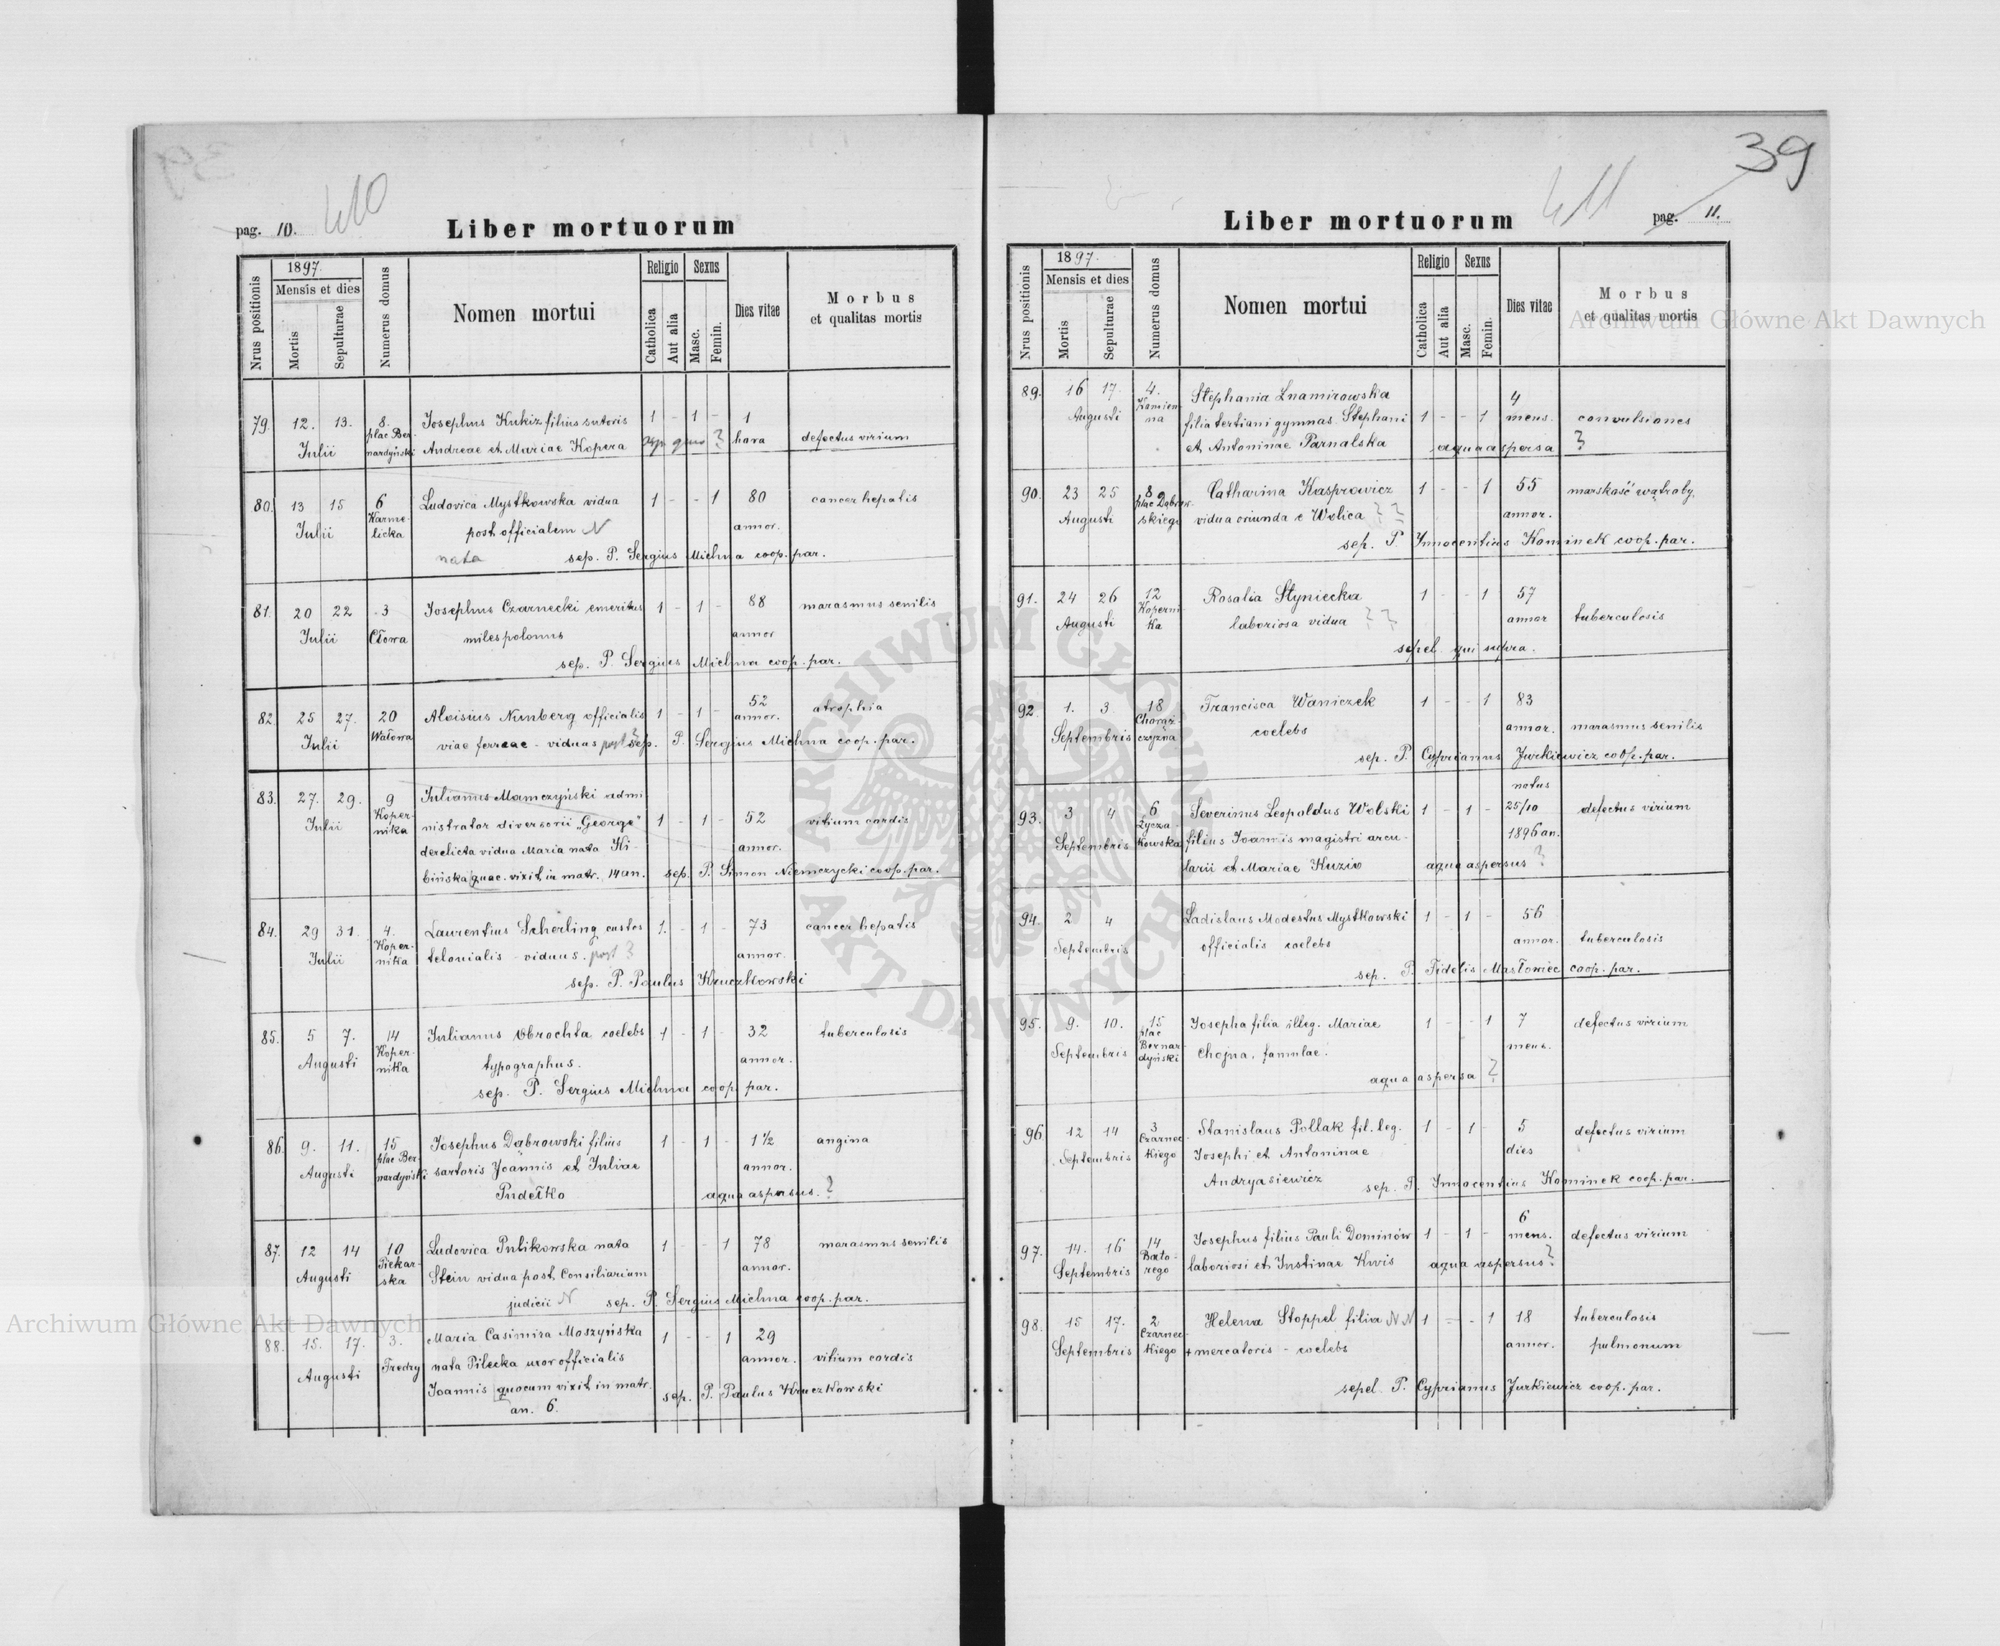 39
pag. 10.
Liber mortuorum
Nrus positionis
1897.
Mensis et dies
Mortis
Sepulturae
Numerus domus
Nomen mortui
Religio
Catholica
Aut alia
Sexus
Masc.
Femin.
Dies vitae
Morbus
et qualitas mortis
79. 12. 13. 8. Josephus Kukiz filius sutoris 1 - 1 - 1
Julii plac Ber-
nardyński Andreae et Mariae Kopera hora defectus virium
80. 13 15 6 Ludovica Mystkowska vidua 1 - - 1 80 cancer hepatis
Julii Karme-
licka post officialem N annor.
nata sep. P. Sergius Michna coop. par.
81. 20 22 3 Josephus Czarnecki emeritus 1 - 1 - 88 marasmus senilis
Julii Cłowa miles polonus annor
sep. P. Sergius Michna coop. par.
82 25 27. 20 Aloisius Nimberg officialis 1 - 1 - 52 annor. atrophia
Julii Wałowa viae ferreae - viduus post ? sep. P. Sergius Michna coop. par.
83. 27. 29. 9 Julianus Mamczyński admi
Julii Koper-
nika nistrator diversorii „George" 1 - 1 - 52 vitium cordis
derelicta vidua Maria nata Ki- annor.
bińska quac. vixit in matr. 14 an. sep. P. Simon Niemczycki coop. par.
84. 29 31. 4. Laurentius Scherling custos 1. - 1 - 73 cancer hepatis
Julii Koper-
nika telonialis - viduus. post ? annor.
sep. P. Paulus Kruczkowski
85. 5 7. 14 Julianus Obrochta coelebs 1 - 1 - 32 tuberculosis
Augusti Koper-
nika typographus. annor.
sep. P. Sergius Michna coop. par.
86. 9. 11. 15 Josephus Dąbrowski filius 1 - 1 - 1½ angina
Augusti plac Ber-
nardyński sartoris Joannis et Juliae annor.
Pudełko aqua aspersus. ?
87. 12 14 10 Ludovica Pulikowska nata 1 - - 1 78 marasmus senilis
Augusti Piekar-
ska Stein vidua post Consiliarium annor.
judicii N sep. P. Sergius Michna coop. par.
88. 15. 17. 3. Maria Casimira Moszyńska 1 - - 1 29
Augusti Fredry nata Pilecka uxor officialis annor. vitium cordis
Joannis quocum vixit in matr. sep. P. Paulus Kruczkowski
an. 6.
39
Liber mortuorum
pag. 11.
Nrus positionis
1897.
Mensis et dies
Mortis
Sepulturae
Numerus domus
Nomen mortui
Religio
Catholica
Aut alia
Sexus
Masc.
Femin.
Dies vitae
Morbus
et qualitas mortis
89. 16 17. 4. Stephania Znamirowska 4
Augusti Kamien-
na filia tertiani gymnas. Stephani 1 - - 1 mens. convulsiones
et Antoninae Parnalska aqua aspersa ?
90. 23 25 8 Catharina Kasprowicz 1 - - 1 55 marskość wątroby.
Augusti plac Dąbrow-
skiego vidua oriunda e Wolica ? ? annor.
sep. P. Innocentius Kominek coop. par.
91. 24 26 12 Rosalia Styniecka 1 - - 1 57
Augusti Koperni-
ka laboriosa vidua ? ? annor tuberculosis
sepel. qui supra.
92. 1. 3 18 Francisca Waniczek 1 - - 1 83
Septembris Chorąż-
czyzna coelebs annor. marasmus senilis
sep. P. Cyprianus Jurkiewicz coop. par.
natus
93. 3 4 6 Severinus Leopoldus Wolski 1 - 1 - 25/10 defectus virium
Septembris Łycza-
kowska filius Joannis magistri arcu- 1896 an.
larii et Mariae Kuziw aqua aspersus ?
94. 2 4 Ladislaus Modestus Mystkowski 1 - 1 - 56
Septembris officialis coelebs annor. tuberculosis
sep. P. Fidelis Masłowiec coop. par.
95. 9. 10. 15 Josepha filia illeg. Mariae 1 - - 1 7 defectus virium
Septembris plac
Bernar-
dyński Chojna, famulae. mens.
aqua aspersa ?
96. 12 14 3 Stanislaus Pollak fil. leg. 1 - 1 - 5 defectus virium
Septembris Czarnec-
kiego Josephi et Antoninae dies
Andryasiewicz sep. P. Innocentius Kominek coop. par.
6
97. 14. 16 14 Josephus filius Pauli Dominów 1 - 1 - mens. defectus virium
Septembris Bato-
rego laboriosi et Justinae Kwis aqua aspersus ?
98. 15 17. 2 Helena Stoppel filia N N 1 - - 1 18 tuberculosis
Septembris Czarnec-
kiego + mercatoris - coelebs annor. pulmonum
sepel. P. Cyprianus Jurkiewicz coop. par.
Archiwum Główne Akt Dawnych
Archiwum Główne Akt Dawnych
ARCHIWUM GŁÓWNE AKT DAWNYCH